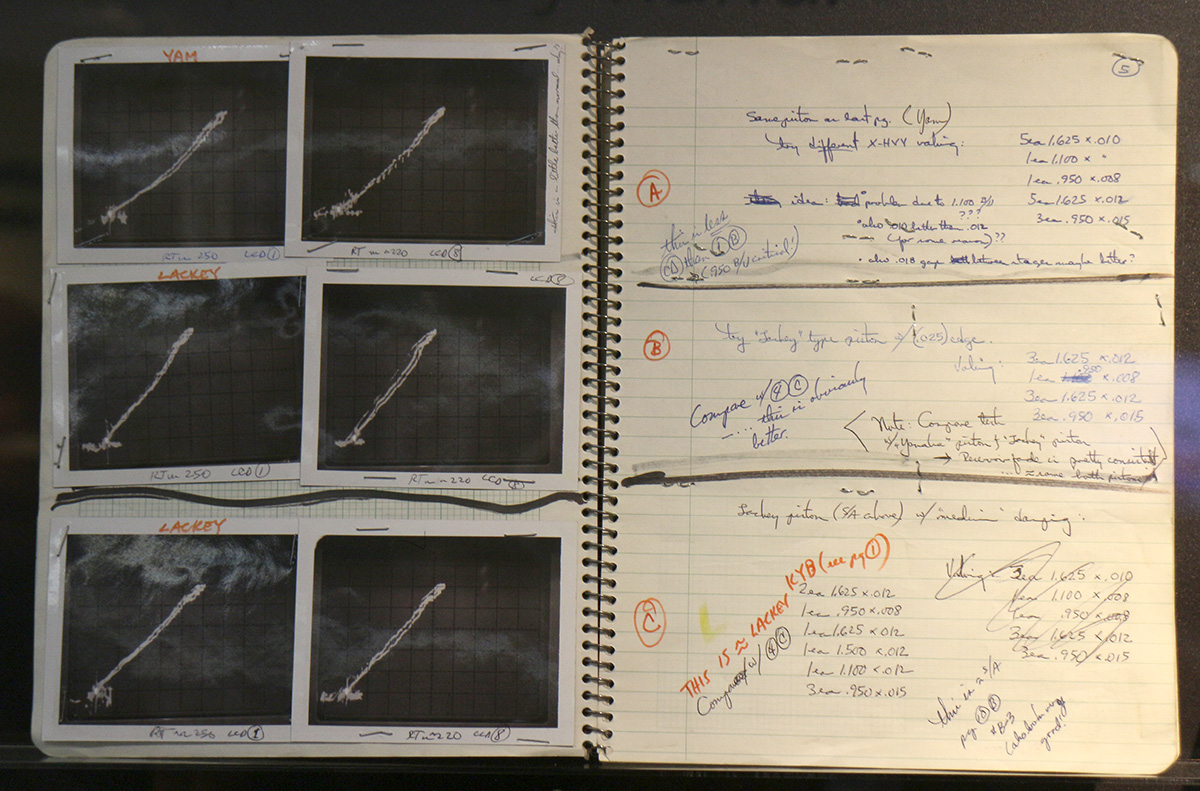 YAM
this is little better than normal
RT ≈ 250 LCD ①
RT ≈ 220 LCD ⑧
LACKEY
RT ≈ 250 LCD ①
RT ≈ 220 LCD ⑧
LACKEY
RT ≈ 250 LCD ①
RT ≈ 220 LCD ⑧
⑤
Same piston as last pg. (Yam)
try different X-HVY valving:
5ea 1.625 x .010
1ea 1.100 x "
1ea .950 x .008
5ea 1.625 x .012
3ea .950 x .015
Ⓐ
idea: problem due to 1.100
???
also .010 better than .012
(for some reason)??
• also .018 gap between stages maybe better?
this is less
than ① Ⓑ
(.950 critical!)
Ⓑ
try "Lackey" type piston w/ (.025) edge.
Valving:
3ea 1.625 x .012
1ea .950 x .008
3ea 1.625 x .012
3ea .950 x .015
Compare w/ ④ Ⓒ
.... this is obviously
better.
Note: Compare test
w/ "Yamaha" piston & "Lackey" piston
→ Reservoir fade is pretty consistent
same both pistons
Lackey piston (S/A above) w/ "medium" damping:
Ⓒ
THIS IS ≈ LACKEY KYB (see pg ①)
Compare w/ ④ Ⓒ
2ea 1.625 x .012
1ea .950 x .008
1ea 1.625 x .012
1ea 1.500 x .012
1ea 1.100 x .012
3ea .950 x .015
Valving: 3ea 1.625 x .010
1ea 1.100 x .008
1ea .950 x .008
3ea 1.625 x .012
3ea .950 x .015
this is ≈ S/A
pg
#B-3
good!